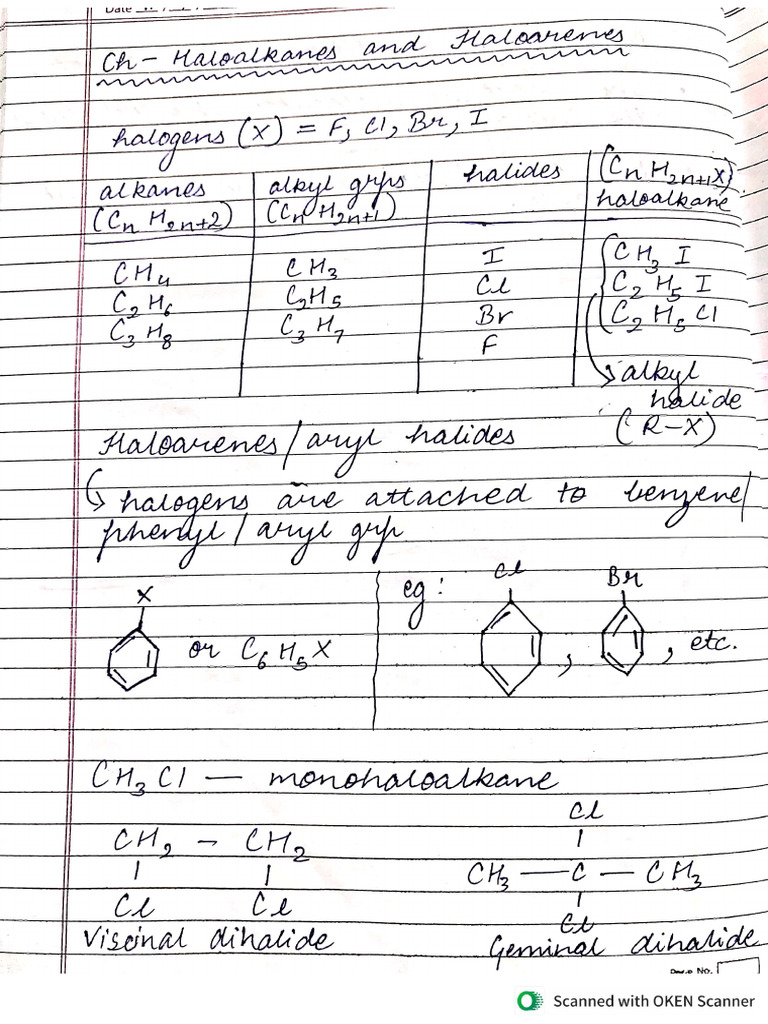 Date
Ch - Haloalkanes and Haloarenes
halogens (X) = F, Cl, Br, I
alkanes (CnH2n+2) | alkyl grps (CnH2n+1) | halides | (CnH2n+1X) haloalkane
CH4 | CH3 | I | CH3 I
C2H6 | C2H5 | Cl | C2H5 I
C3H8 | C3H7 | Br | C2H5 Cl
F
alkyl
halide
(R-X)
Haloarenes/aryl halides
halogens are attached to benzene/
phenyl/aryl grp
X
or C6H5X
eg:
Cl
,
Br
, etc.
CH3Cl — monohaloalkane
CH2 - CH2
Cl Cl
Viscinal dihalide
Cl
CH3 — C — CH3
Cl
Geminal dihalide
Page No.
Scanned with OKEN Scanner